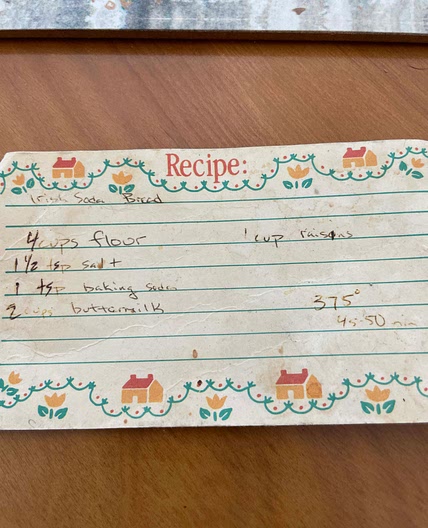 Recipe:
Irish Soda Bread
4 cups flour
1 cup raisins
1 1/2 tsp salt
1 tsp baking soda
2 cups buttermilk
375°
45-50 min